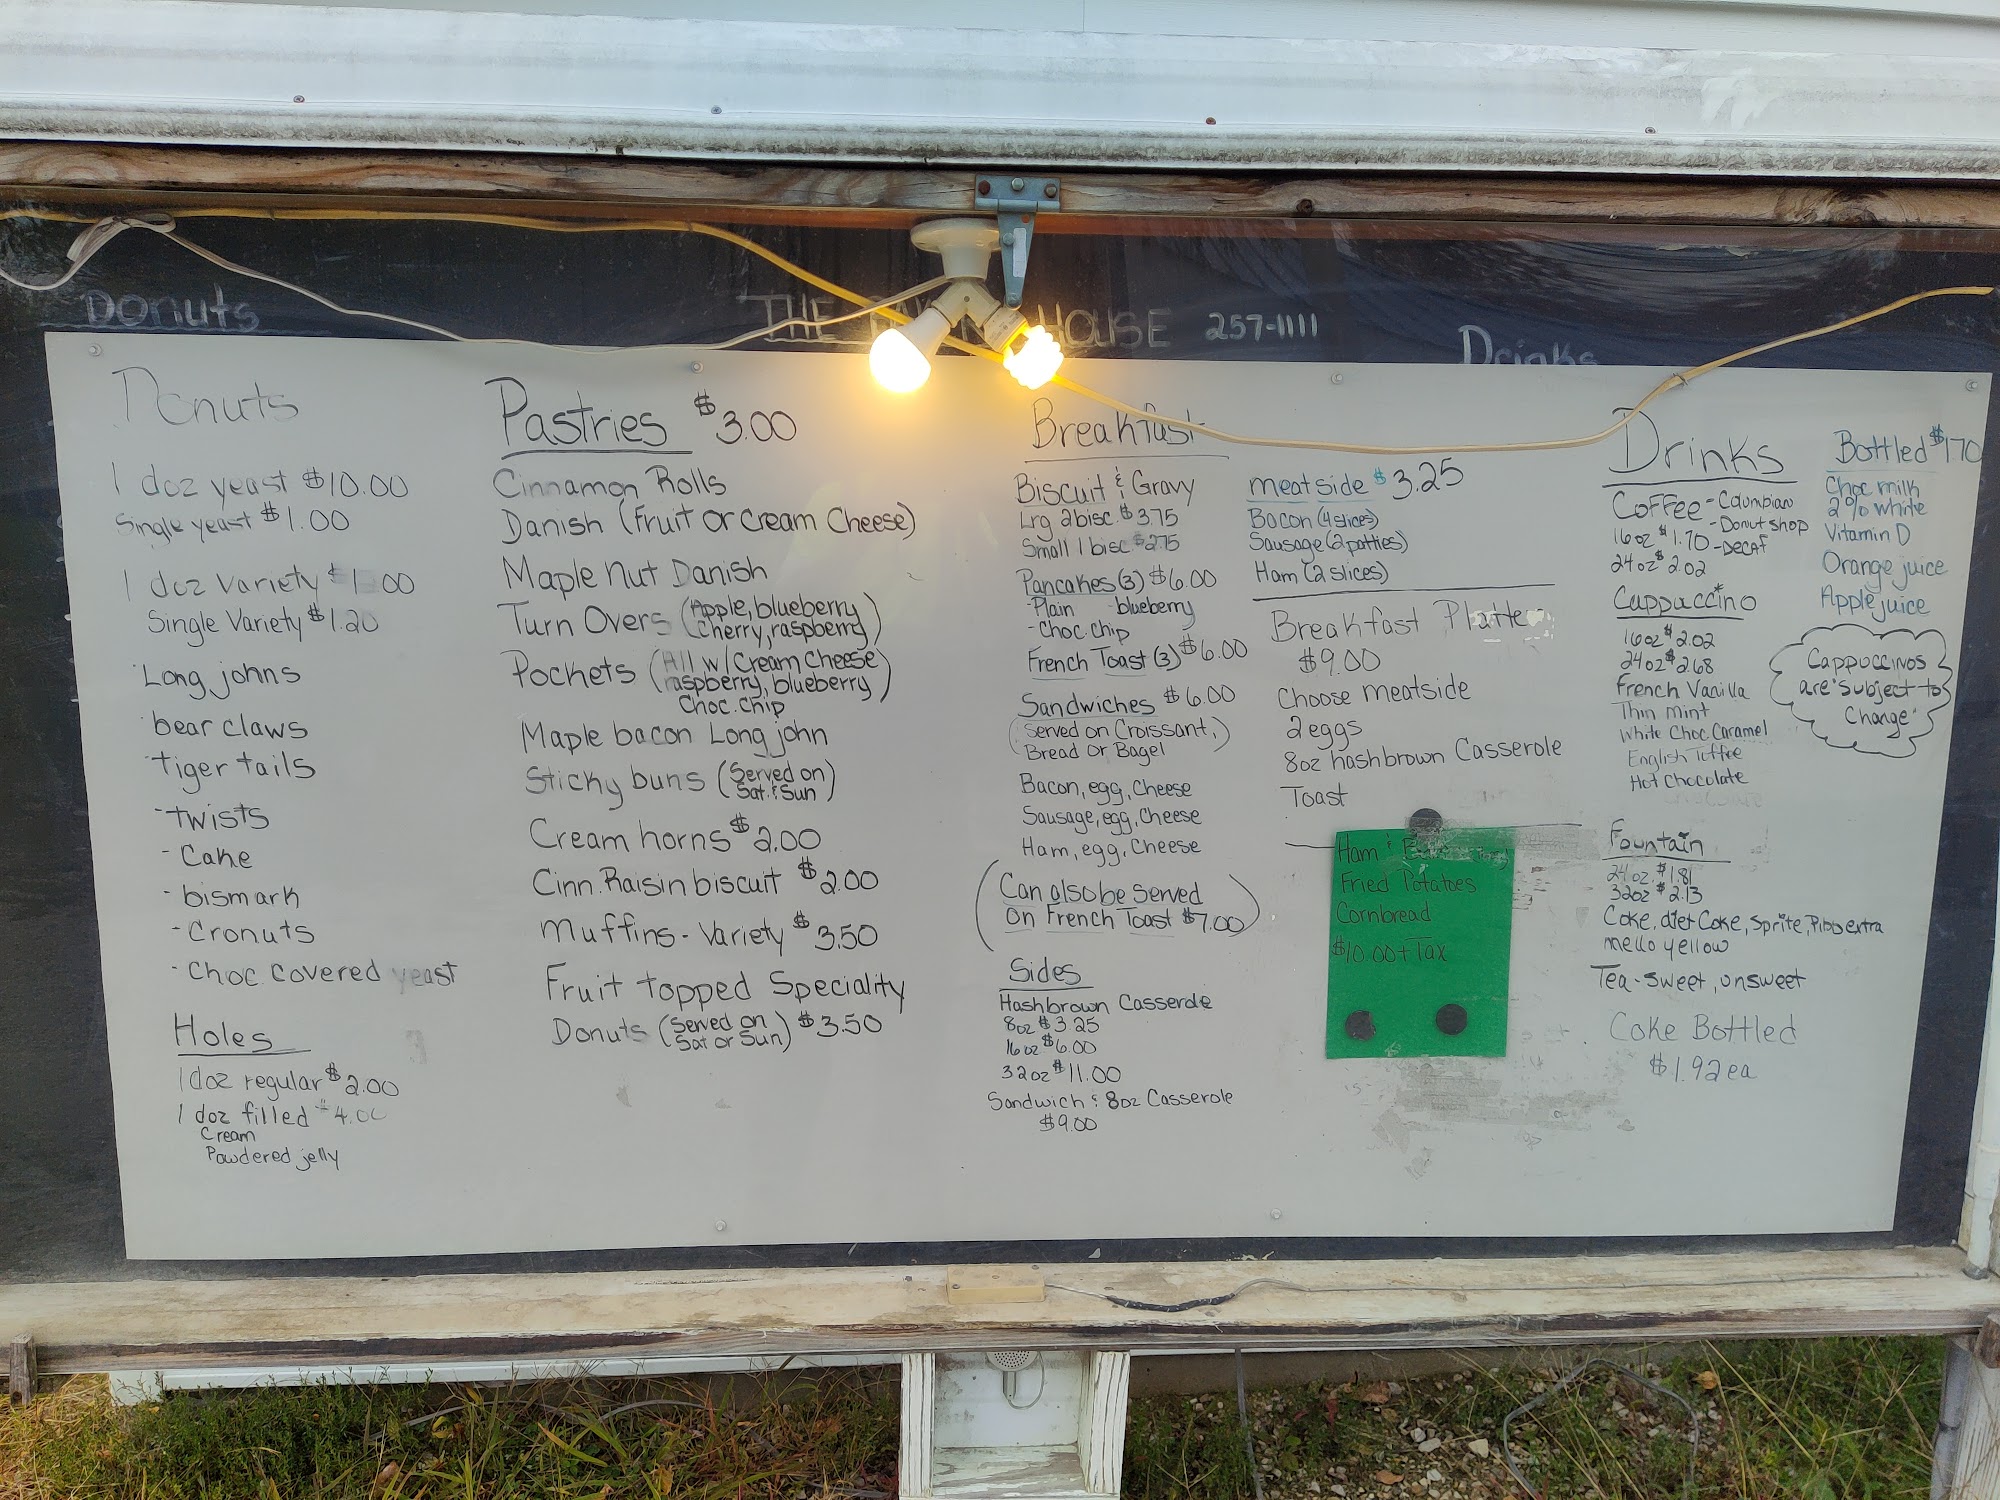 Donuts
THE HOUSE 257-1111
Drinks
Donuts
1 doz yeast $10.00
Single yeast $1.00
1 doz variety
Single Variety $1.20
Long johns
bear claws
tiger tails
-twists
- Cake
- bismark
- Cronuts
- Choc. covered yeast
Holes
1 doz regular $2.00
1 doz filled $4.00
Cream
Powdered jelly
Pastries $3.00
Cinnamon Rolls
Danish (Fruit or Cream Cheese)
Maple Nut Danish
Turn Overs (Apple, blueberry
Cherry, raspberry)
Pockets (All w/ Cream Cheese
raspberry, blueberry)
Choc. chip
Maple bacon Long john
Sticky buns (Served on
Sat. & Sun)
Cream horns $2.00
Cinn. Raisin biscuit $2.00
Muffins - Variety $3.50
Fruit topped Speciality
Donuts (Served on
Sat or Sun) $3.50
Breakfast
Biscuit & Gravy
Lrg 2 bisc. $3.75
Small 1 bisc $2.75
Pancakes (3) $6.00
-Plain -blueberry
-Choc. chip
French Toast (3) $6.00
Sandwiches $6.00
(Served on Croissant,)
Bread or Bagel
Bacon, egg, cheese
Sausage, egg, cheese
Ham, egg, cheese
(Can also be served
on French Toast $7.00)
Sides
Hashbrown Casserole
8oz $3.25
16oz $6.00
32oz $11.00
Sandwich & 8oz Casserole
$9.00
meatside $3.25
Bacon (4 slices)
Sausage (2 patties)
Ham (2 slices)
Breakfast Platter
$9.00
Choose meatside
2 eggs
8oz hashbrown Casserole
Toast
Ham &
Fried Potatoes
Cornbread
$10.00 + Tax
Drinks
Coffee - Coumbian
- Donut shop
16oz $1.70 - Decaf
24oz $2.02
Cappuccino
16oz $2.02
24oz $2.68
French Vanilla
Thin mint
White Choc Caramel
English Toffee
Hot Chocolate
Fountain
24oz. $1.81
32oz $2.13
Coke, diet Coke, Sprite, Pibb extra
mello yellow
Tea - Sweet, unsweet
Coke Bottled
$1.92 ea
Bottled $170
Choc milk
2% white
Vitamin D
Orange juice
Apple juice
Cappuccinos
are "Subject to
Change"